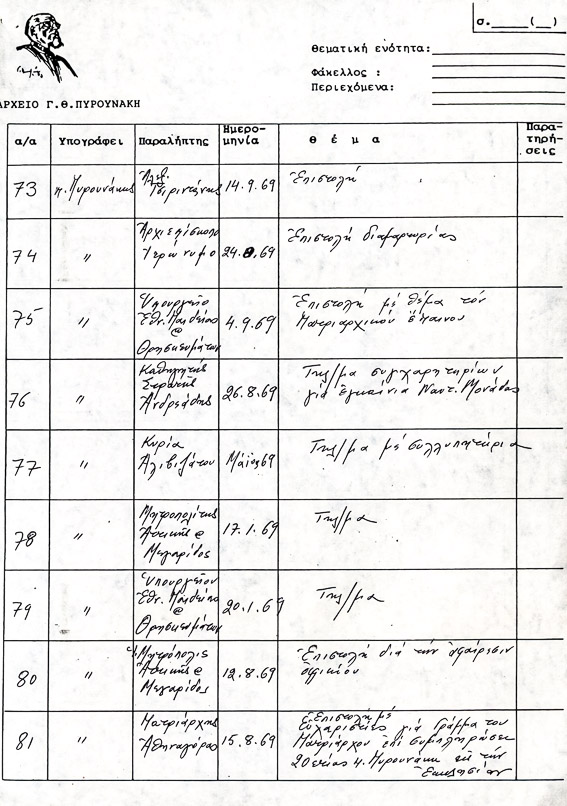 σ.______(__)
Θεματική ενότητα:
Φάκελλος :
Περιεχόμενα:
ΑΡΧΕΙΟ Γ.Θ.ΠΥΡΟΥΝΑΚΗ
α/α Υπογράφει Παραλήπτης Ημερομηνία θ έ μ α Παρατηρήσεις
73 π. Πυρουνάκης 14.9.69 Ἐπιστολή
74 " Ἀρχιεπίσκοπο
Ἱερώνυμο 24.8.69 Ἐπιστολή διαμαρτυρίας
75 " Ὑπουργεῖο
Ἐθν. Παιδείας
@
Θρησκευμάτων 4.9.69 Ἐπιστολή μέ θέμα τόν
Πατριαρχικόν ἔπαινον
76 " Καθηγητής
Ἀνδρεάδης 26.8.69 Τηλ/μα συγχαρητηρίων
γιά Ἐγκαίνια Ναυτ. Μονάδας
77 " Κυρία
Ἀλιβιζάτου Μάϊος 69 Τηλ/μα μέ συλλυπητήρια
78 " Μητροπολίτης
Ἀττικῆς @
Μεγαρίδος 17.1.69 Τηλ/μα
79 " Ὑπουργεῖον
Ἐθν. Παιδείας
@
Θρησκευμάτων 20.1.69 Τηλ/μα
80 " Μητρόπολις
Ἀττικῆς @
Μεγαρίδος 12.8.69 Ἐπιστολή διά τήν ἀφαίρεσιν
ὀφικίου
81 " Πατριάρχης
Ἀθηναγόρας 15.8.69 Ἐπιστολή μέ
Εὐχαριστίες γιά Γράμμα του
Πατριάρχου ἐπί συμπληρώσει
20ετίας π. Πυρουνάκη εἰς τήν
Ἐκκλησίαν